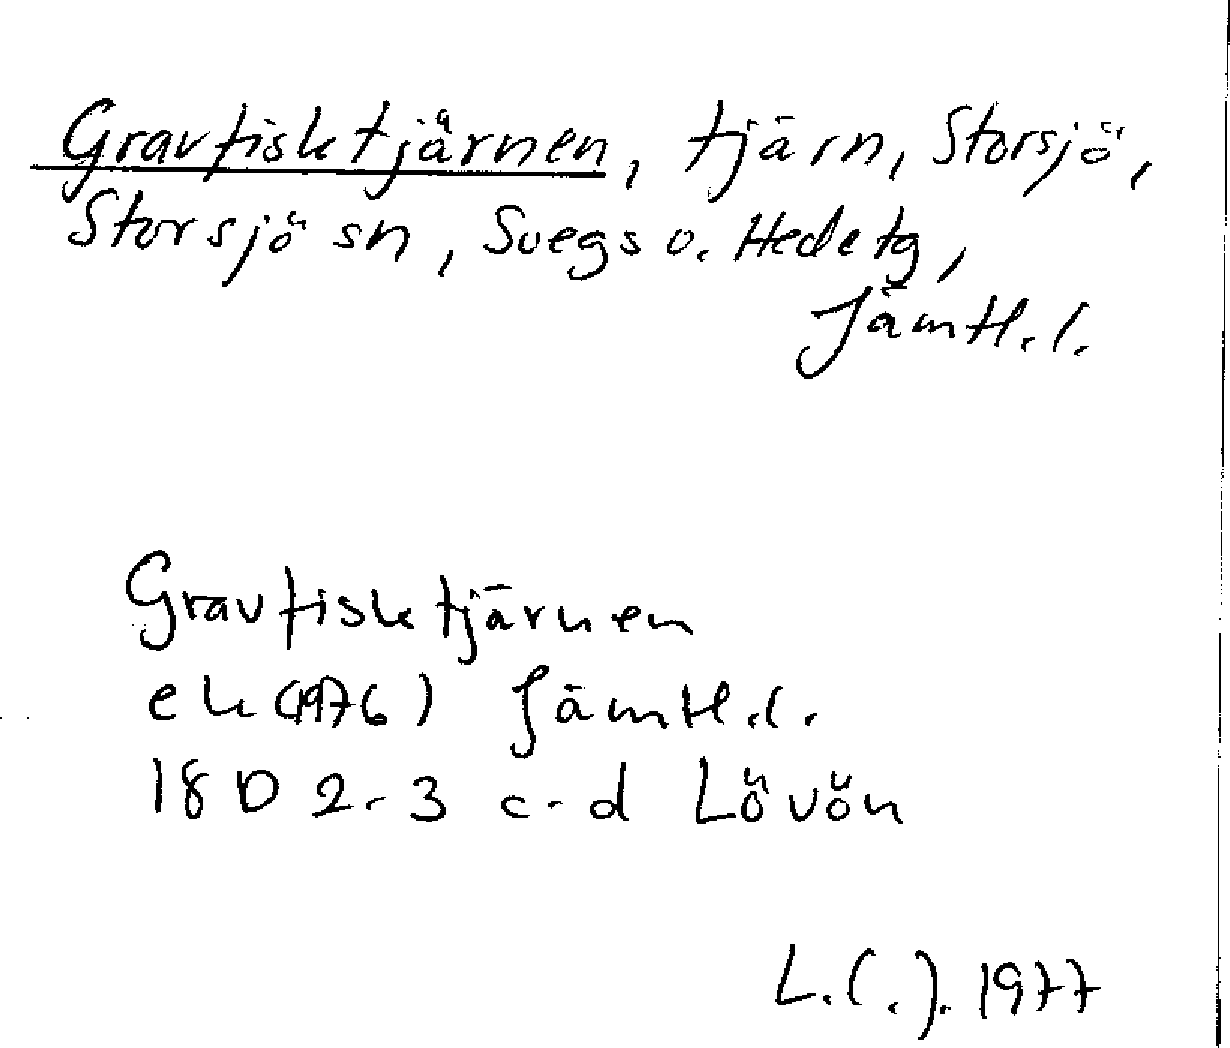 Gravfisktjärnen, tjärn, Storsjö,
Storsjö sn, Svegs o. Hede tg,
Jämtl. l.
Gravfisktjärnen
ek (1976) Jämtl. l.
18 D 2-3 c-d Lövön
L. (.). 1977